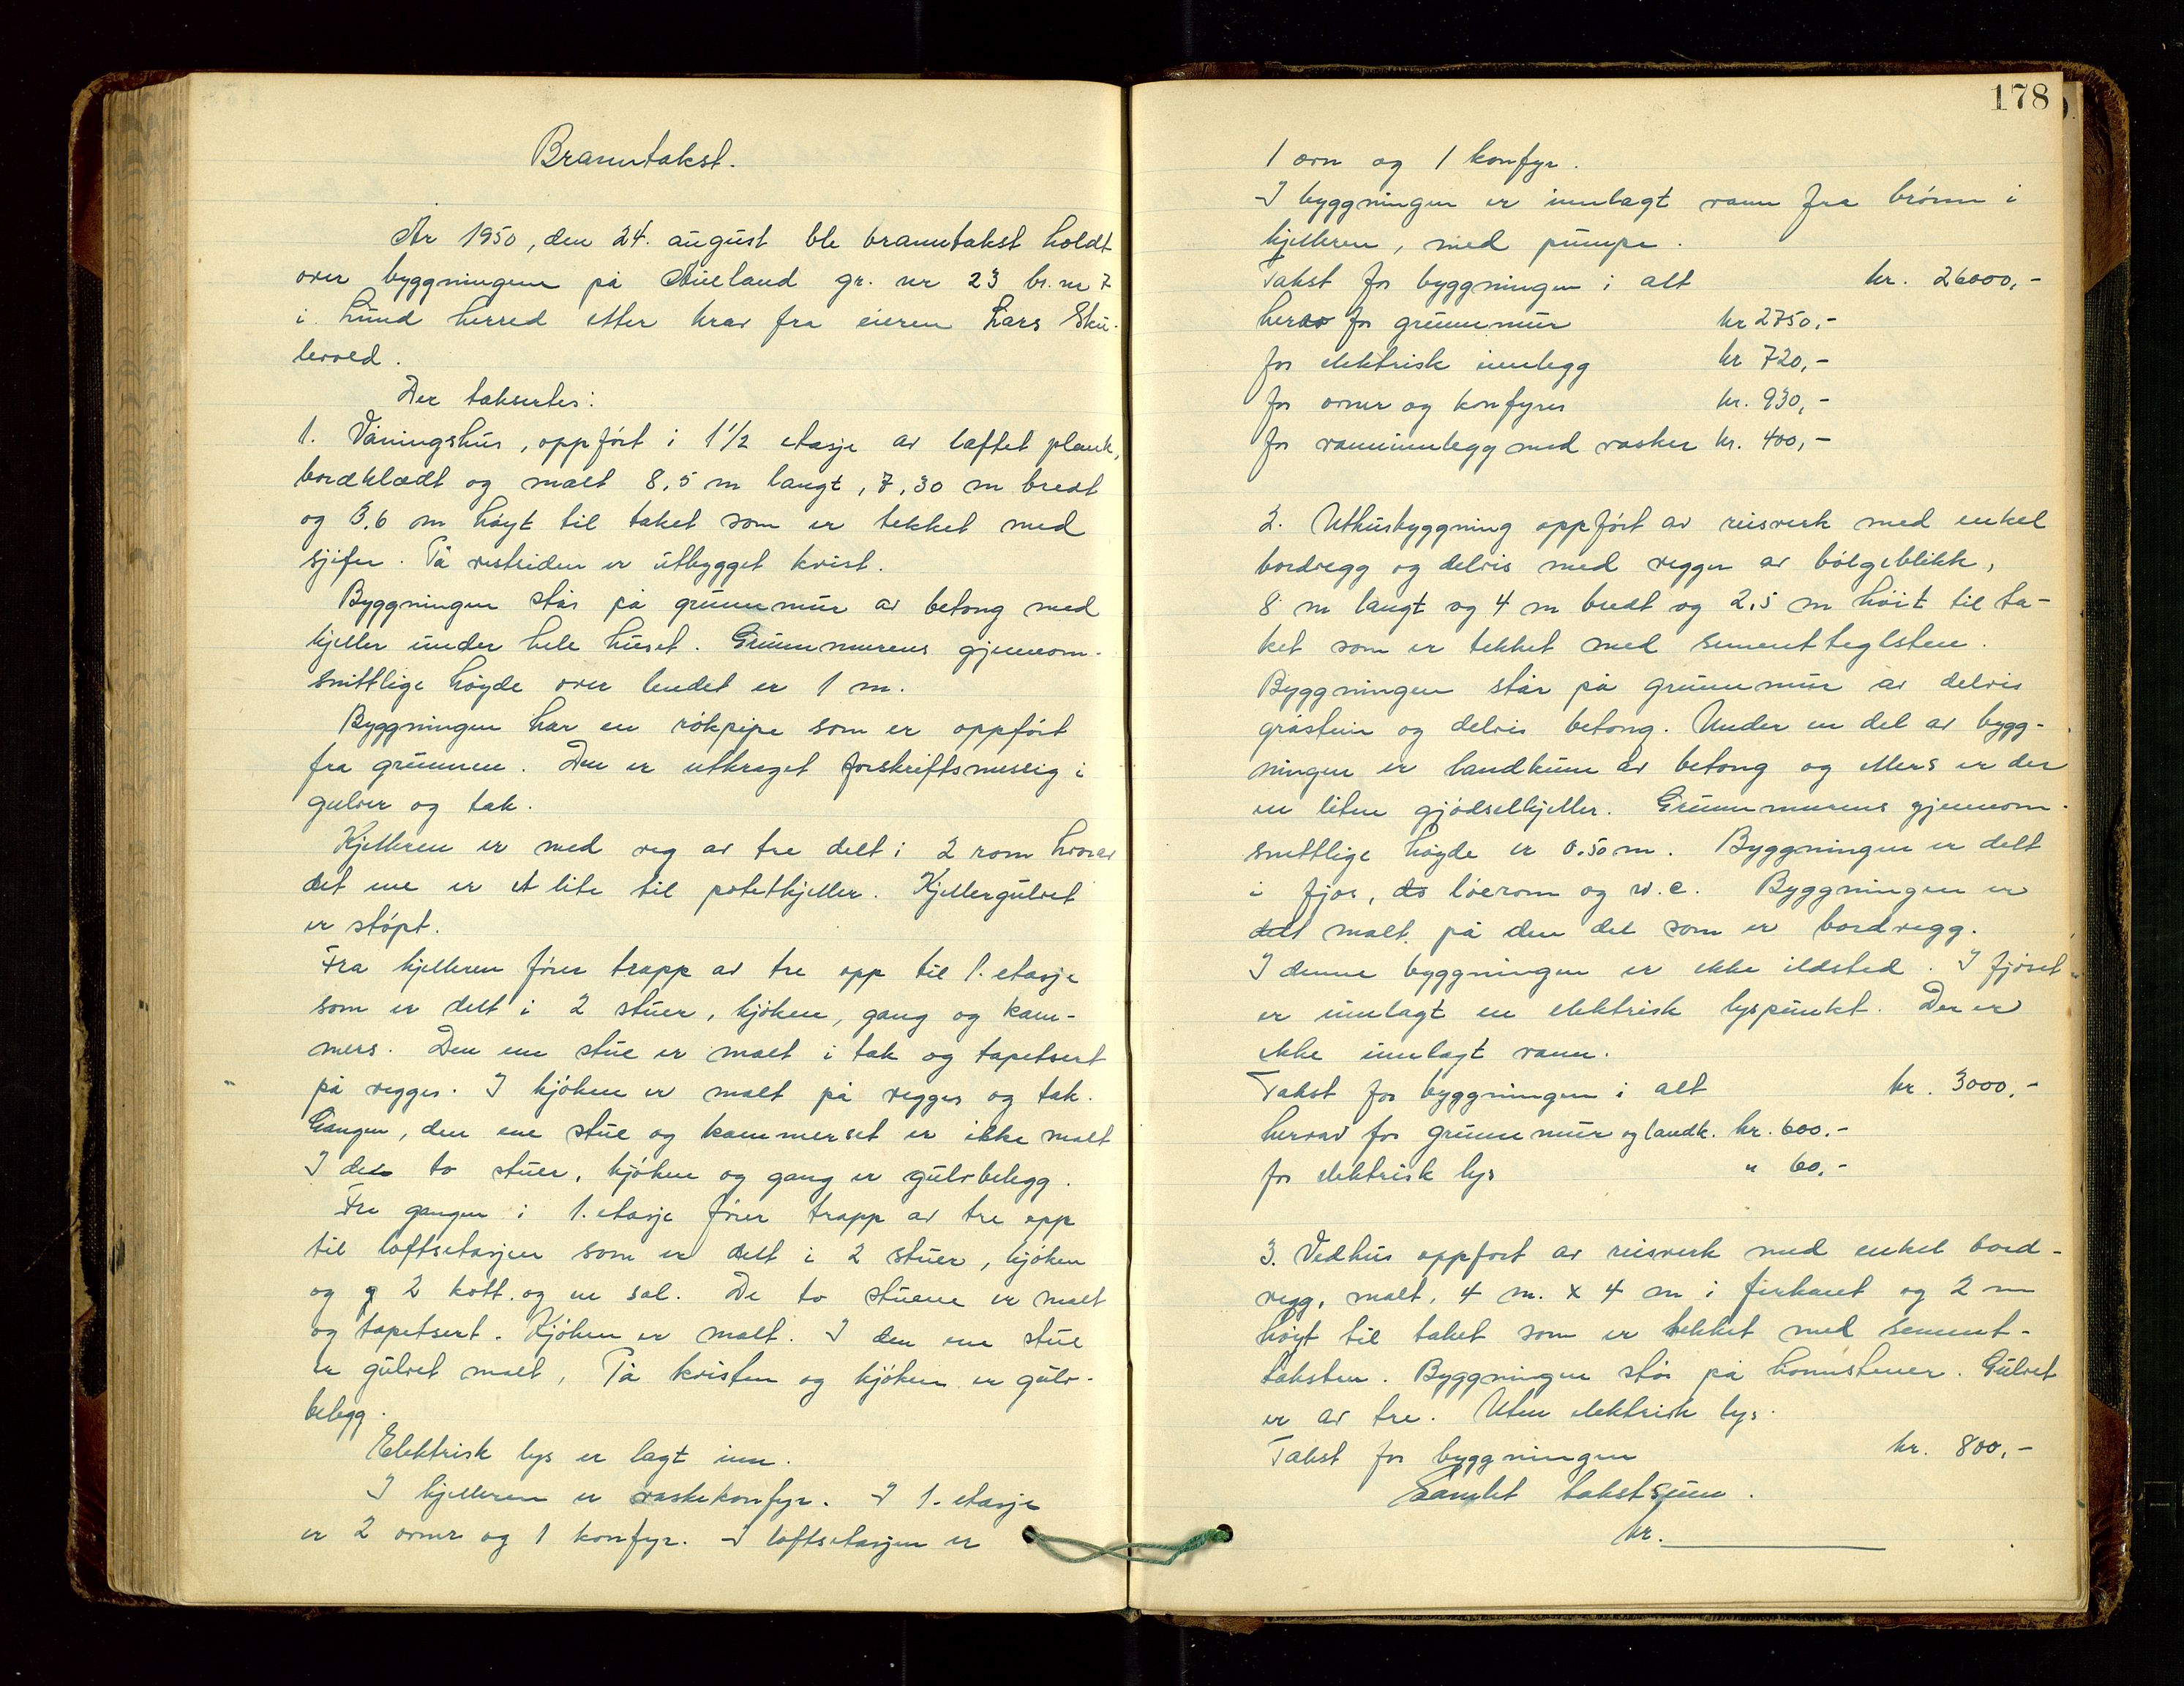 Branntakst.
År 1950, den 24. august ble branntakst holdt
over byggningene på Aueland gr. nr 23 br. nr 7
i Lund herred etter krav fra eieren Lars Sku-
lerved.
Der taksertes:
1. Våningshus, oppført i 1 1/2 etasje av laftet plank,
bordklædt og malt 8,5 m langt, 7,30 m bredt
og 3,6 m høyt til taket som er tekket med
sjifer. På vestsiden er utbygget kvist.
Byggningen står på grunnmur av betong med
kjeller under hele huset. Grunnmurens gjennom-
snittlige høyde over lendet er 1 m.
Byggningen har en rökpipe som er oppført
fra grunnen. Den er utkraget forskriftsmessig i
gulver og tak.
Kjelleren er med veg av tre delt i 2 rom hvorav
det ene er et lite til potetkjeller. Kjellergulvet
er støpt.
Fra kjelleren fører trapp av tre opp til 1. etasje
som er delt i 2 stuer, kjøken, gang og kam-
mers. Den ene stue er malt i tak og tapetsert
på vegger. I kjøken er malt på vegger og tak.
Gangen, den ene stue og kammerset er ikke malt
I de to stuer, kjøken og gang er gulvbelegg.
Fra gangen i 1. etasje fører trapp av tre opp
til loftsetasjen som er delt i 2 stuer, kjøken
og 2 kott. og en sal. De to stuene er malt
og tapetsert. Kjøken er malt. I den ene stue
er gulvet malt, På kvisten og kjøken er gulv-
belegg.
Elektrisk lys er lagt inn.
I kjelleren er vaskekomfyr. I 1. etasje
er 2 ovner og 1 komfyr. I loftsetasjen er
178
1 ovn og 1 komfyr.
I byggningen er innlagt vann fra brønn i
kjelleren, med pumpe.
Takst for byggningen i alt kr. 26000,-
herav for grunnmur kr 2750,-
for elektrisk innlegg kr 720,-
for ovner og komfyrer kr. 930,-
for vanninnlegg med vasker kr. 400,-
2. Uthusbyggning oppført av reisverk med enkel
bordvegg og delvis med vegger av bølgeblikk,
8 m langt og 4 m bredt og 2,5 m höit til ta-
ket som er tekket med sementteglsten.
Byggningen står på grunnmur av delvis
gråstein og delvis betong. Under en del av bygg-
ningen er landkum av betong og ellers er der
en liten gjødselkjeller. Grunnmurens gjennom-
snittlige høyde er 0,50 m. Byggningen er delt
i fjos, do løerom og w.c. Byggningen er
delt malt på den del som er bordvegg.
I denne byggningen er ikke ildsted. I fjöset
er innlagt en elektrisk lyspunkt. Der er
ikke innlagt vann.
Takst for byggningen i alt kr. 3000,-
herav for grunnmur og landk. kr. 600,-
for elektrisk lys " 60,-
3. Vedhus oppført av reisverk med enkel bord-
vegg, malt, 4 m. x 4 m i firkant og 2 m
høyt til taket som er tekket med sement-
taksten. Byggningen står på hornstener. Gulvet
er av tre. Uten elektrisk lys.
Takst for byggningen kr. 800,-
Samlet takstsum.
kr.